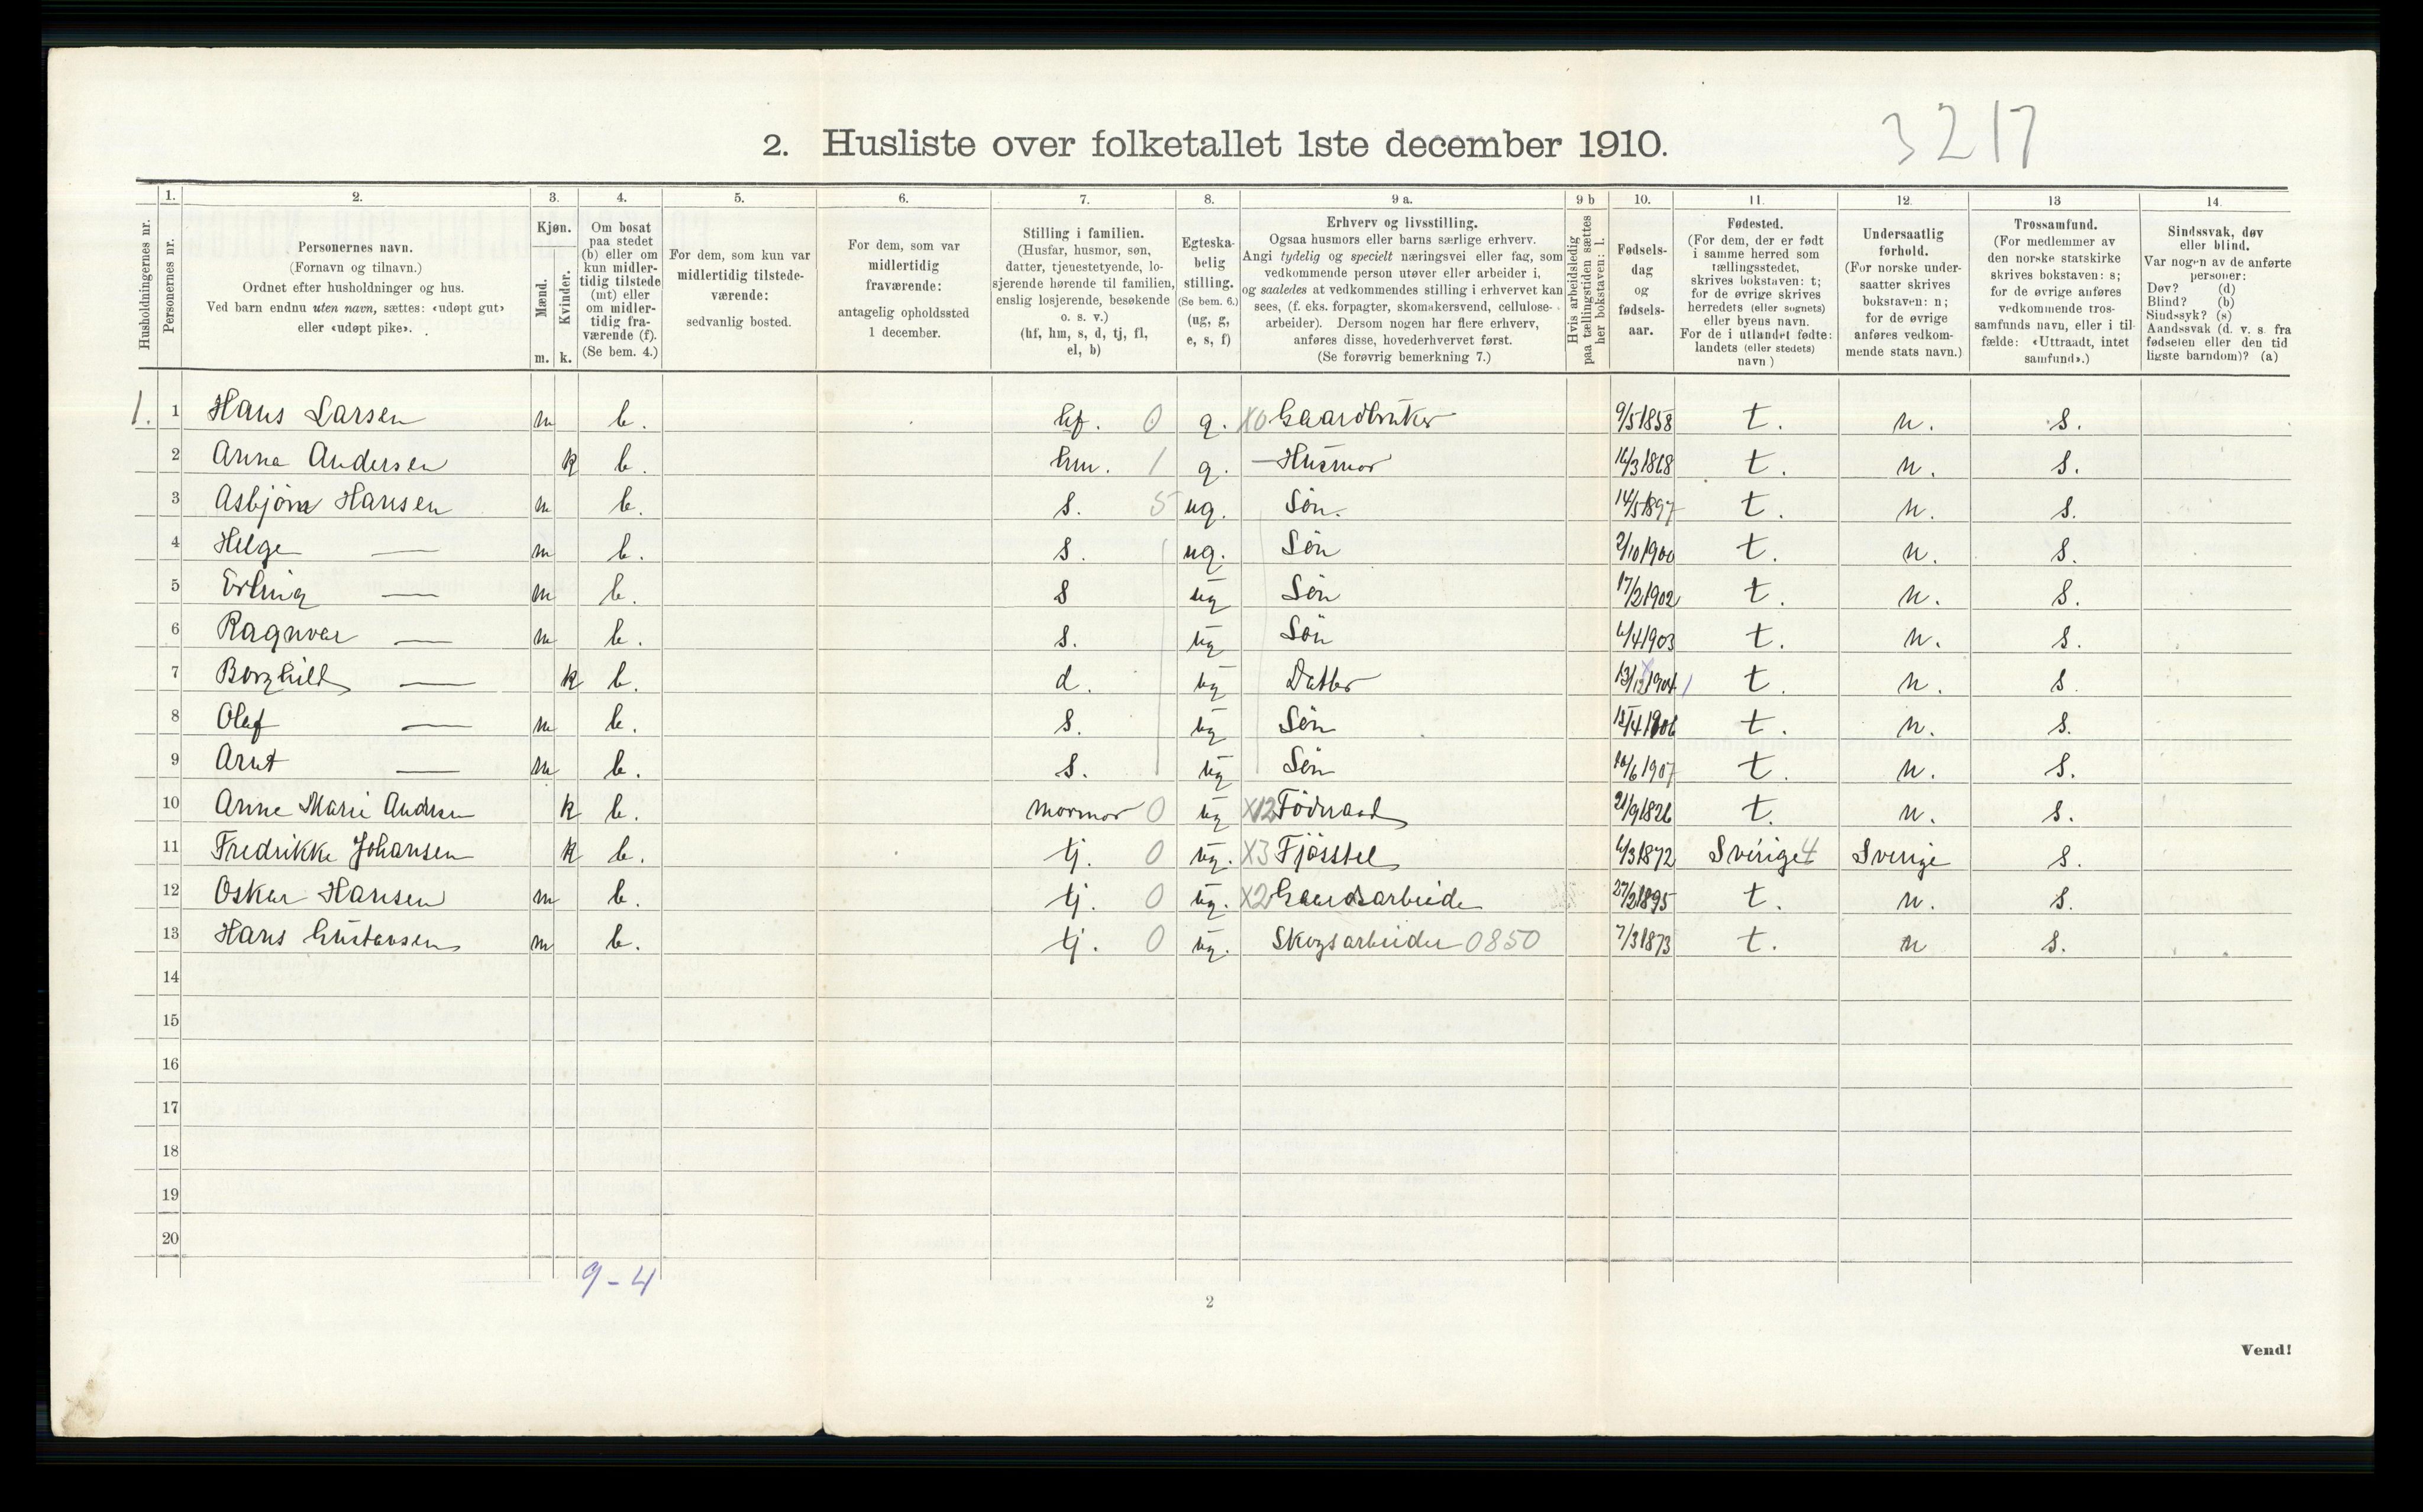 3217
2. Husliste over folketallet 1ste december 1910.
Husholdningernes nr.
1.
Personernes nr.
2.
Personernes navn.
(Fornavn og tilnavn.)
Ordnet efter husholdninger og hus.
Ved barn endnu uten navn, sættes: «udøpt gut»
eller «udøpt pike».
3.
Kjøn.
Mænd.
Kvinder.
m. k.
4.
Om bosat
paa stedet
(b) eller om
kun midler-
tidig tilstede
(mt) eller
om midler-
tidig fra-
værende (f).
(Se bem. 4.)
5.
For dem, som kun var
midlertidig tilstede-
værende:
sedvanlig bosted.
6.
For dem, som var
midlertidig
fraværende:
antagelig opholdssted
1 december.
7.
Stilling i familien.
(Husfar, husmor, søn,
datter, tjenestetyende, lo-
sjerende hørende til familien,
enslig losjerende, besøkende
o. s. v.)
(hf, hm, s, d, tj, fl,
el, b)
8.
Egteska-
belig
stilling.
(Se bem. 6.)
(ug, g,
e, s, f)
9 a.
Erhverv og livsstilling.
Ogsaa husmors eller barns særlige erhverv.
Angi tydelig og specielt næringsvei eller fag, som
vedkommende person utøver eller arbeider i,
og saaledes at vedkommendes stilling i erhvervet kan
sees, (f. eks. forpagter, skomakersvend, cellulose-
arbeider). Dersom nogen har flere erhverv,
anføres disse, hovederhvervet først.
(Se forøvrig bemerkning 7.)
9 b
Hvis arbeidsledig
paa tællingstiden sættes
her bokstaven: l.
10.
Fødsels-
dag
og
fødsels-
aar.
11.
Fødested.
(For dem, der er født
i samme herred som
tællingsstedet,
skrives bokstaven: t;
for de øvrige skrives
herredets (eller sognets)
eller byens navn.
For de i utlandet fødte:
landets (eller stedets)
navn)
12.
Undersaatlig
forhold.
(For norske under-
saatter skrives
bokstaven: n;
for de øvrige
anføres vedkom-
mende stats navn.)
13
Trossamfund.
(For medlemmer av
den norske statskirke
skrives bokstaven: s;
for de øvrige anføres
vedkommende tros-
samfunds navn, eller i til-
fælde: «Uttraadt, intet
samfund».)
14.
Sindssvak, døv
eller blind.
Var nogen av de anførte
personer:
Døv? (d)
Blind? (b)
Sindssyk? (s)
Aandssvak (d. v. s. fra
fødselen eller den tid
ligste barndom)? (a)
1. 1 Hans Larsen m b. hf. 0 g. X0 Gaardbruker 9/5 1858 t. n. s.
2 Anna Andersen k b. hm. 1 g. — Husmor 16/3 1868 t. n. s.
3 Asbjörn Hansen m b. s. 5 ug. Sön. 14/5 1897 t. n. s.
4 Helge — m b. s. ug. Sön 2/10 1900 t. n. s.
5 Erling — m b. s ug Sön 17/2 1902 t. n. s.
6 Ragnvar — m b. s. ug Sön 6/4 1903 t. n. s.
7 Borghild — k b. d. ug Datter 13/12 1904 t. n. s.
8 Olaf — m b. s. ug Sön 18/4 1906 t. n. s.
9 Arnt — m b. s. ug Sön 10/6 1907 t. n. s.
10 Anne Marie Andrsen k b. mormor 0 ug X12 Föderaad 21/9 1826 t. n. s.
11 Fredrikke Johansen k b. tj. 0 ug. X3 Fjösstel 6/3 1872 Sverige 4 Sverige s.
12 Oskar Hansen m b. tj. 0 ug. X2 Gaardsarbeide 27/2 1895 t. n. s.
13 Hans Gustavsen m b. tj. 0 ug. Skogsarbeider 0850 7/3 1873 t. n s.
14
15
16
17
18
19
20
9-4
2
Vend!